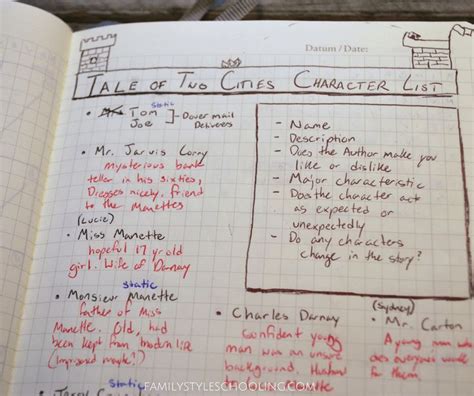 Datum / Date:
TALE OF TWO CITIES CHARACTER LIST
Static
• Tom
Joe
Dover mail
Deliverers
• Mr. Jarvis Lorry
mysterious bank
teller in his sixties,
Dresses nicely. friend
to the Manettes
(Lucie)
• Miss Manette
hopeful 17 yr old
girl. Wife of Darnay
static
• Monsieur Manette
father of Miss
Manette. Old, had
been kept from
(Imprisoned maybe?)
Static
- Name
- Description
- Does the Author make you
like or dislike
- Major characteristic
- Does the character act
as expected or
unexpectedly
- Do any characters
change in the story?
• Charles Darnay
Confident young
man was an unsure
background. Husband
(Sydney)
• Mr. Carton
A young man who
does everyones work
for them.
FAMILYSTYLESCHOOLING.COM